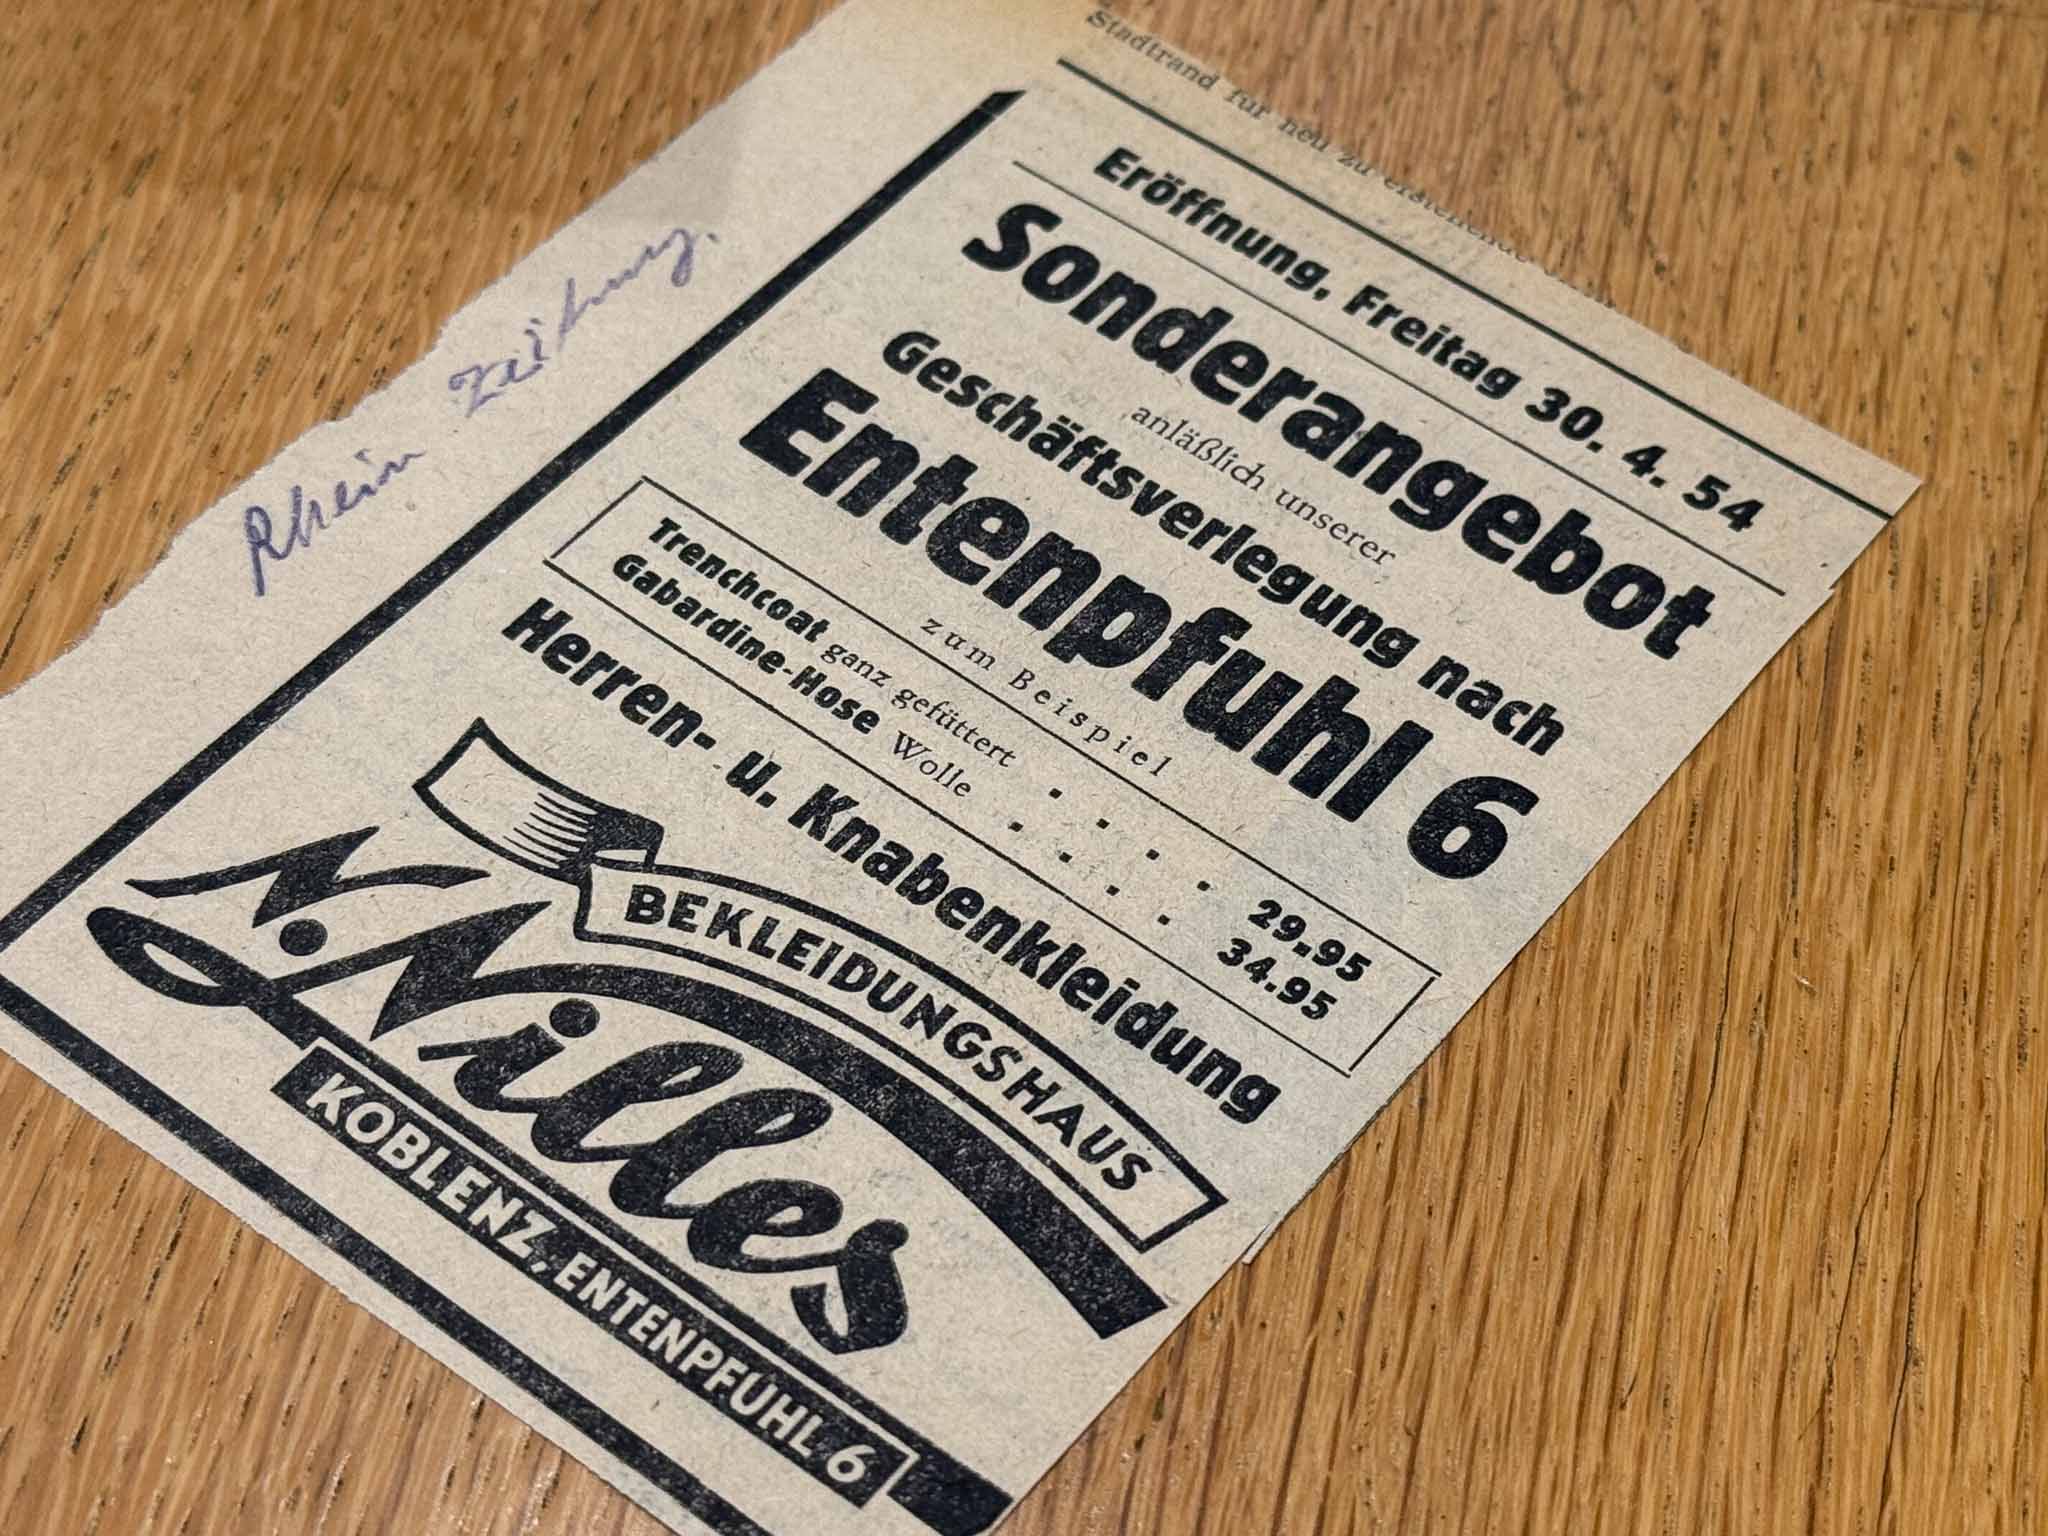 Stadtrand für neu zu erstehende
Eröffnung, Freitag 30. 4. 54
Sonderangebot
anläßlich unserer
Geschäftsverlegung nach
Entenpfuhl 6
zum Beispiel
Trenchcoat ganz gefüttert . . . . 29.95
Gabardine-Hose Wolle . . . . 34.95
Herren- u. Knabenkleidung
BEKLEIDUNGSHAUS
N. Nilles
KOBLENZ, ENTENPFUHL 6
Rhein Zeitung.